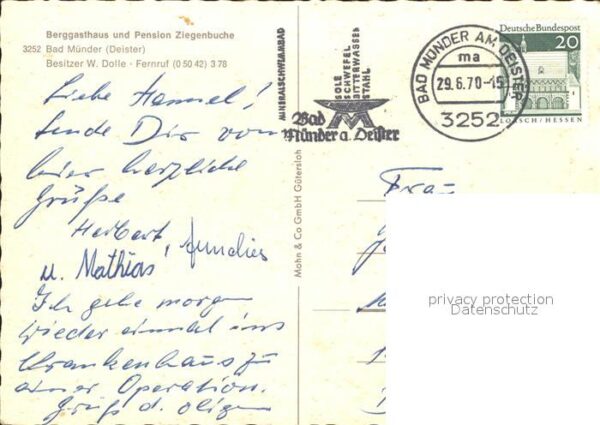 Berggasthaus und Pension Ziegenbuche
3252 Bad Münder (Deister)
Besitzer W. Dolle - Fernruf (0 50 42) 3 78
Liebe Hannel!
Sende Dir von
hier herzliche
Grüße
Herbert, Annelies
u. Mathias
Ich gehe morgen
wieder einmal ins
Krankenhaus zu
einer Operation.
Gruß d. obigen
MINERALSCHWIMMBAD
SOLE
SCHWEFEL
BITTERWASSER
STAHL
Bad
Münder a. Deister
Mohn & Co GmbH Gütersloh
BAD MÜNDER AM DEISTER
ma
29.6.70-15
3252
Deutsche Bundespost
20
LORSCH/HESSEN
Frau
privacy protection
Datenschutz